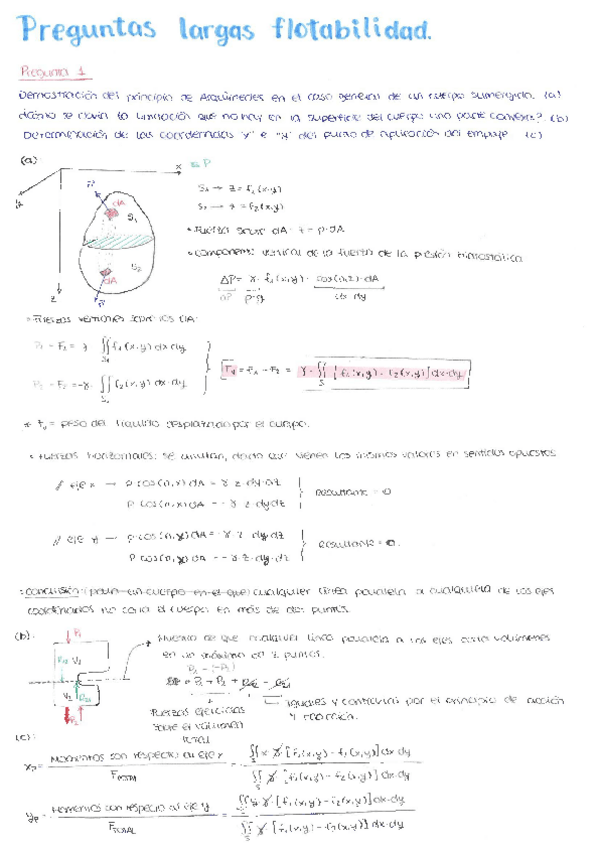 Preguntas largas flotabilidad.
Pregunta 1
Demostración del principio de Arquímedes en el caso general de un cuerpo sumergido. (a)
¿Cómo se elimina la limitación que no hay en la superficie del cuerpo una parte convexa? (b)
Determinación de las coordenadas "x" e "y" del punto de aplicación del empuje (c)
(a):
x ≡ P
S₁ → z = f₁(x,y)
S₂ → z = f₂(x,y)
n
dA
S₁
• Fuerza sobre dA: f = p·dA
S₂
• Componente vertical de la fuerza de la presión hidrostática
dA
z
n
ΔP = γ · f₁(x,y) · cos(n,z) · dA
ρ·g
dx dy
• Fuerzas verticales sobre los dA:
P₁ - F₁ = γ ∬ f₁(x,y) dx dy
S₁
Fᵥ = F₁ - F₂ = γ · ∬ [f₁(x,y) - f₂(x,y)] dx·dy
S
P₂ - F₂ = -γ · ∬ f₂(x,y) dx·dy
S₂
* Fᵥ = peso del líquido desplazado por el cuerpo.
• Fuerzas horizontales: se anulan, dado que tienen los mismos valores en sentidos opuestos
// eje x → p cos(n,x) dA = γ z · dy·dz
resultante = 0
p cos(n,x) dA = -γ · z · dy·dz
// eje y → p·cos(n,y) dA = γ · z dy dz
resultante = 0.
p cos(n,y) dA = -γ · z · dy dz
• conclusión: (para un cuerpo en el que) cualquier línea paralela a cualquiera de los ejes
coordenados no corta el cuerpo en más de dos puntos.
(b):
P₁
V₁
V₂
P₂
de que cualquier línea paralela a los ejes corta volúmenes
en un máximo de 2 puntos.
P₂ - (-P₁)
= P₁ + P₂ +
iguales y contrarias por el principio de acción
y reacción.
Fuerzas ejercidas
sobre el volumen
total
(c):
xₚ = Momentos con respecto al eje x / F total = ∬ x·γ·[f₁(x,y) - f₂(x,y)] dx dy / ∬ γ·[f₁(x,y) - f₂(x,y)] dx·dy
yₚ = Momentos con respecto al eje y / F TOTAL = ∬ y·γ·[f₁(x,y) - f₂(x,y)] dx·dy / ∬ γ·[f₁(x,y) - f₂(x,y)] dx·dy